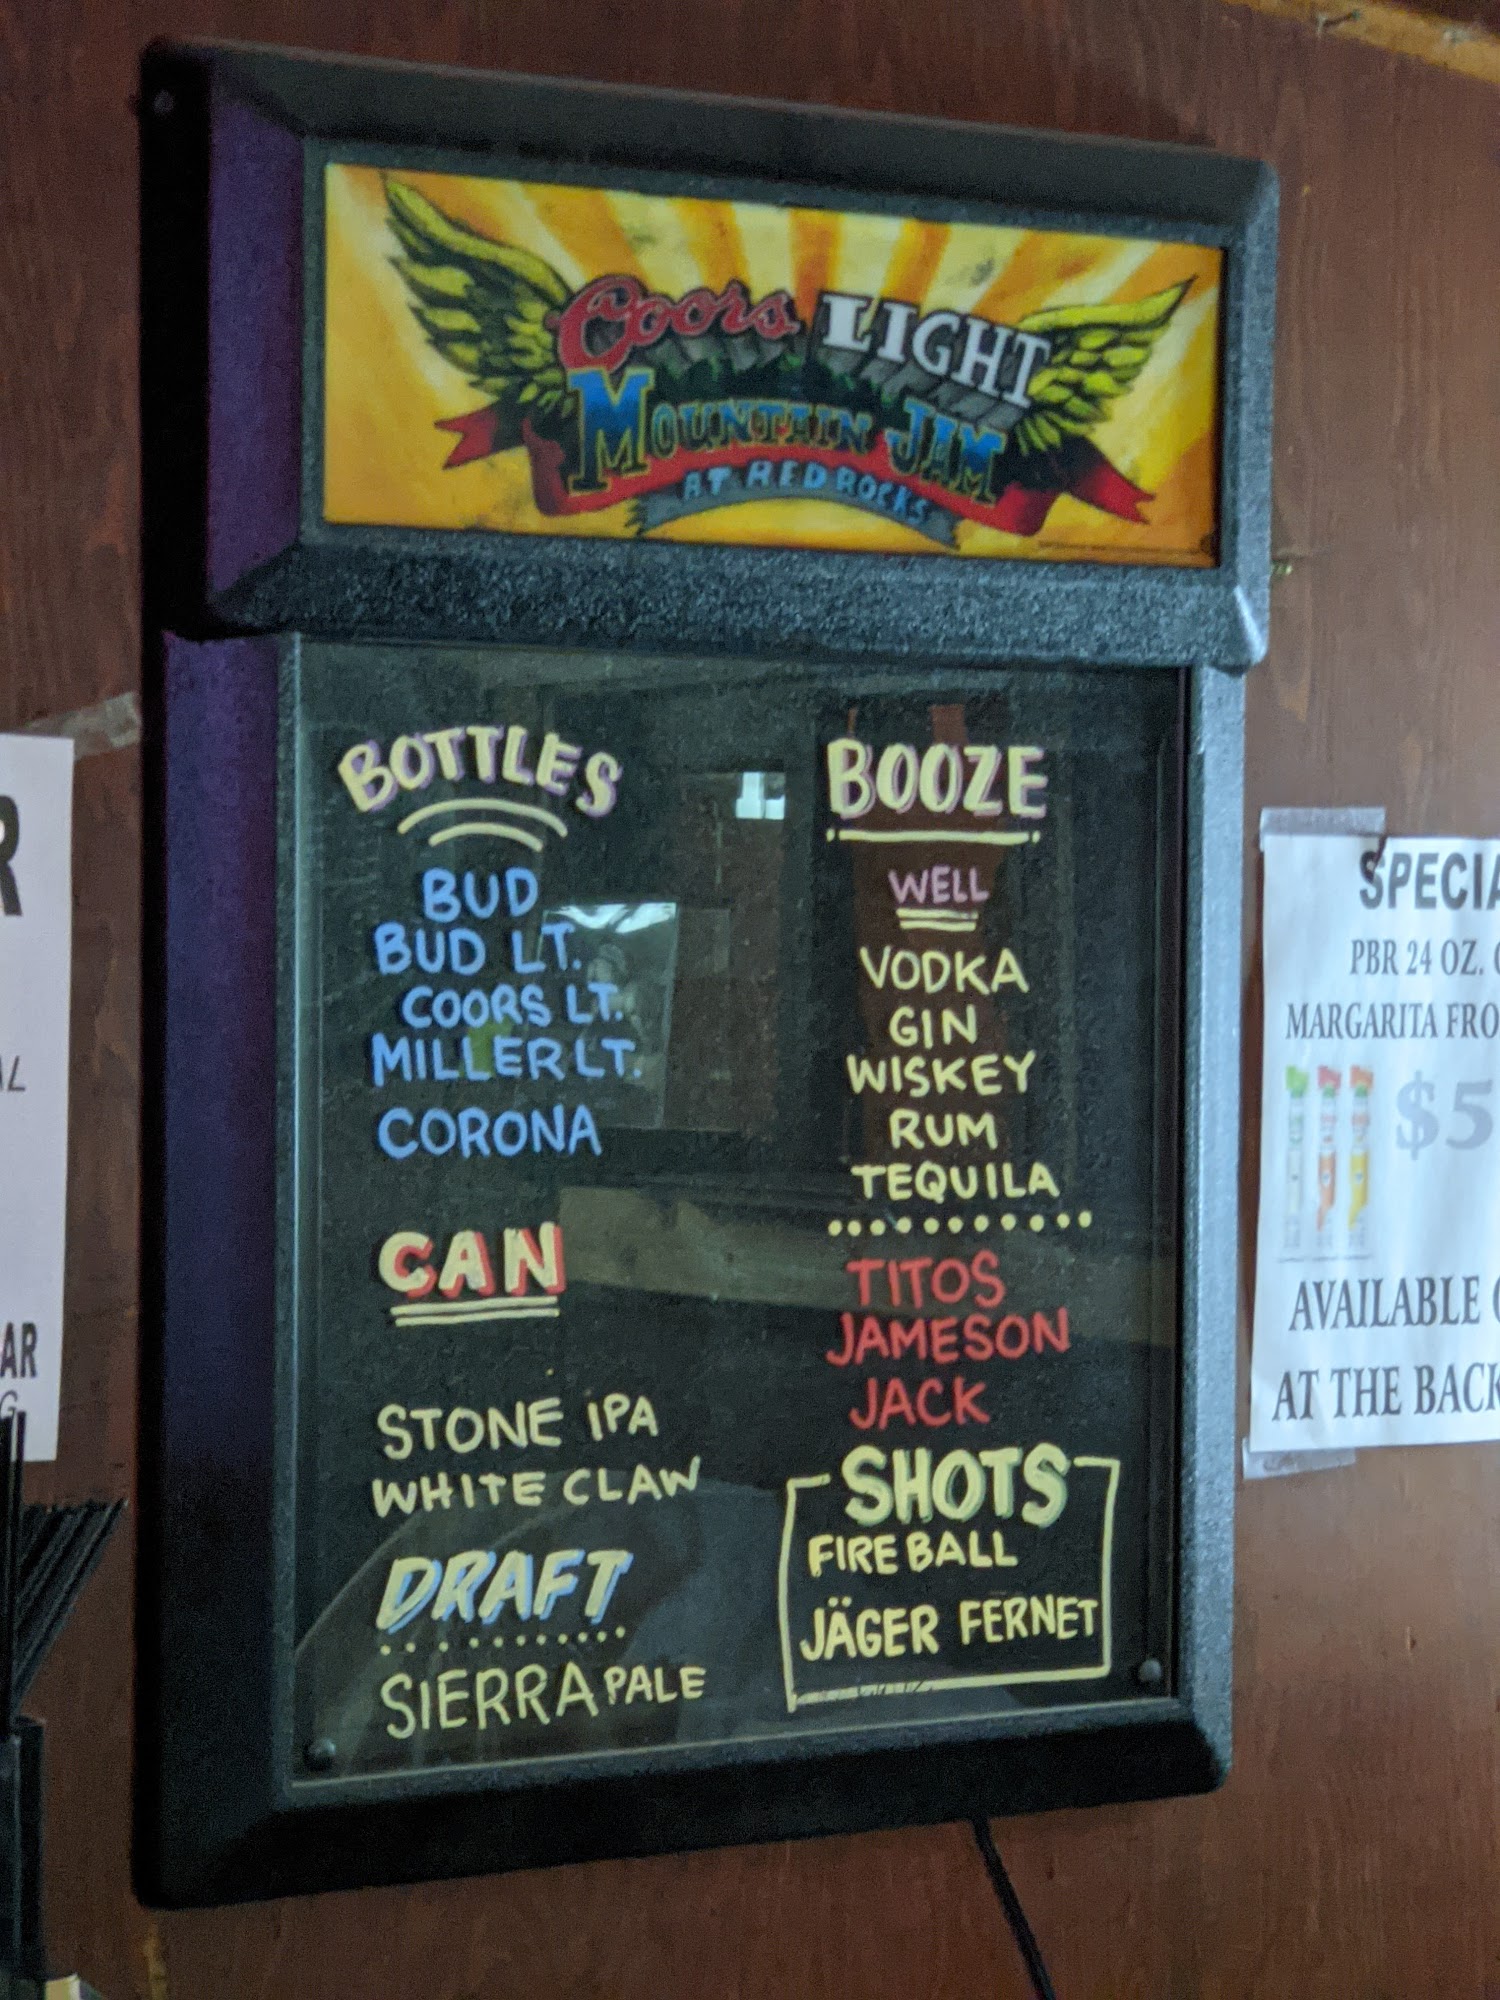 Coors LIGHT
MOUNTAIN JAM
AT RED ROCKS
BOTTLES
BUD
BUD LT.
COORS LT.
MILLER LT.
CORONA
CAN
STONE IPA
WHITE CLAW
DRAFT
SIERRA PALE
BOOZE
WELL
VODKA
GIN
WISKEY
RUM
TEQUILA
TITOS
JAMESON
JACK
SHOTS
FIREBALL
JÄGER FERNET
R
AL
AR
G
SPECIA
PBR 24 OZ.
MARGARITA FRO
$5
AVAILABLE
AT THE BACK